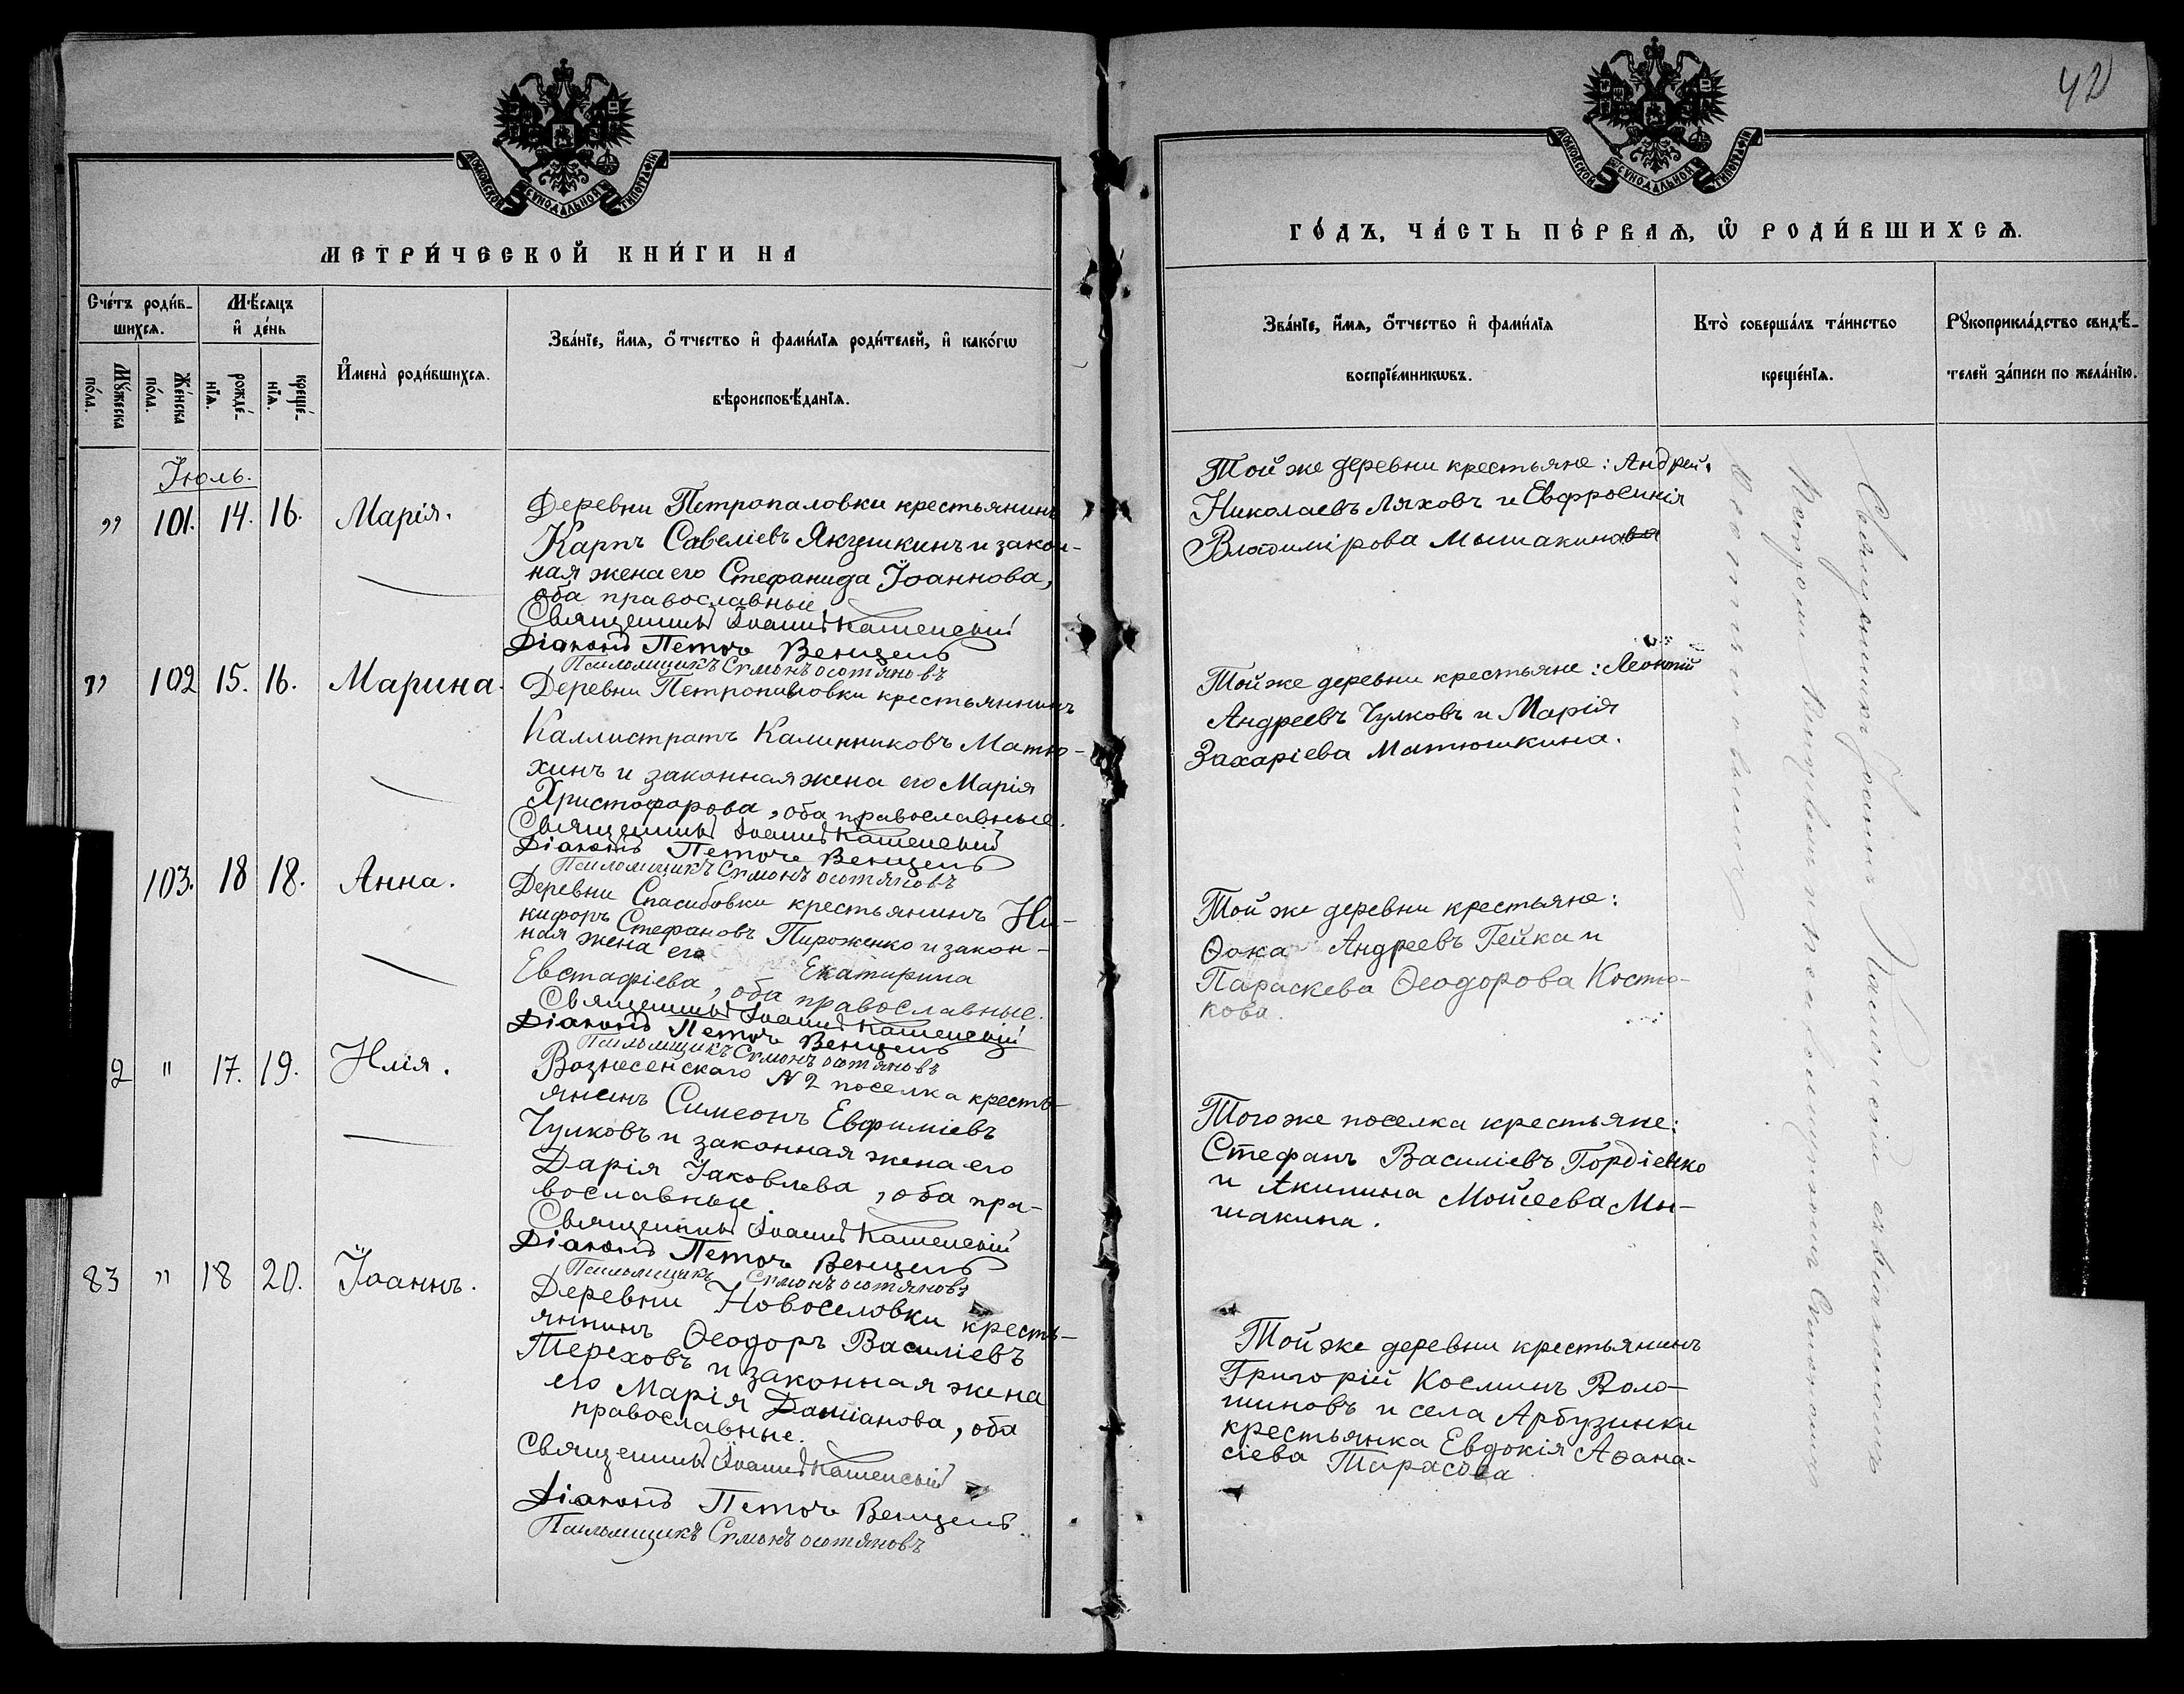 42
МОСКОВСКОЙ СѴНОДАЛЬНОЙ ТИПОГРАФІИ
МЕТРИ́ЧЕСКОЙ КНИ́ГИ НА
Сче́тъ роди́в-
шихсѧ.
Мѣ́сѧцъ
и҆ де́нь
Мꙋ́жеска
по́ла.
Же́нска
по́ла.
рожде́-
нїѧ.
креще́-
нїѧ.
И҆мена̀ роди́вшихсѧ.
Зва́нїе, и҆́мѧ, ѻ҆́тчество и҆ фами́лїѧ роди́телей, и҆ како́гѡ
вѣроисповѣ́данїѧ.
Іюль.
„ 101. 14. 16. Марія.
Деревни Петропаловки крестьянинъ
Карпъ Савеліевъ Якушкинъ и закон-
ная жена его Стефанида Іоаннова,
оба православные
Священникъ Іоаннъ Каменскій
Діаконъ Петръ Венцель
Псаломщикъ
„ 102 15. 16. Марина.
Деревни Петропавловки крестьянинъ
Каллистратъ Калинниковъ Матю-
хинъ и законная жена его Марія
Христофорова, оба православные.
Священникъ Іоаннъ Каменскій
Діаконъ Петръ Венцель
Псаломщикъ
103. 18 18. Анна.
Деревни Спасибовки крестьянинъ Ни-
кифоръ Стефановъ Пироженко и закон-
ная жена его Екатирина
Евстафіева, оба православные.
Священникъ Іоаннъ Каменскій
Діаконъ Петръ Венцель
Псаломщикъ
2 " 17. 19. Илія.
Вознесенскаго N 2 поселка кресть-
янинъ Симеонъ Евфиміевъ
Чулковъ и законная жена его
Дарія Іаковлева, оба пра-
вославные
Священникъ Іоаннъ Каменскій
Діаконъ Петръ Венцель
Псаломщикъ
83 „ 18 20. Іоаннъ.
Деревни Новоселовки кресть-
янинъ Ѳеодоръ Василіевъ
Тереховъ и законная жена
его Марія Даміанова, оба
православные.
Священникъ Іоаннъ Каменскій
Діаконъ Петръ Венцель.
Псаломщикъ
МОСКОВСКОЙ СѴНОДАЛЬНОЙ ТИПОГРАФІИ
ГО́ДЪ, ЧА́СТЬ ПЕ́РВАѦ, Ѽ РОДИ́ВШИХСѦ.
Зва́нїе, и҆́мѧ, ѻ҆́тчество и҆ фами́лїѧ
воспрїе́мникѡвъ.
Кто̀ соверша́лъ та́инство
креще́нїѧ.
Рꙋкоприкла́дство свидѣ́-
телей за́писи по жела́нїю.
Той же деревни крестьяне: Андрей
Николаевъ Ляховъ и Евфросинія
Владимірова Мышакина
Той же деревни крестьяне: Леонтій
Андреевъ Чулковъ и Марія
Захаріева Матюшкина.
Той же деревни крестьяне:
Ѳока Андреевъ Гейка и
Параскева Ѳеодорова Костю-
кова.
Того же поселка крестьяне:
Стефанъ Василіевъ Гордіенко
и Акилина Мойсеева Мы-
шакина.
Той же деревни крестьянинъ
Григорій Косминъ Воло-
шиновъ и села Арбузинки
крестьянка Евдокія Аѳана-
сіева Тарасова
Священникъ Іоаннъ Каменскій съ діакономъ
Петромъ Венцелемъ и псаломщикомъ Симономъ